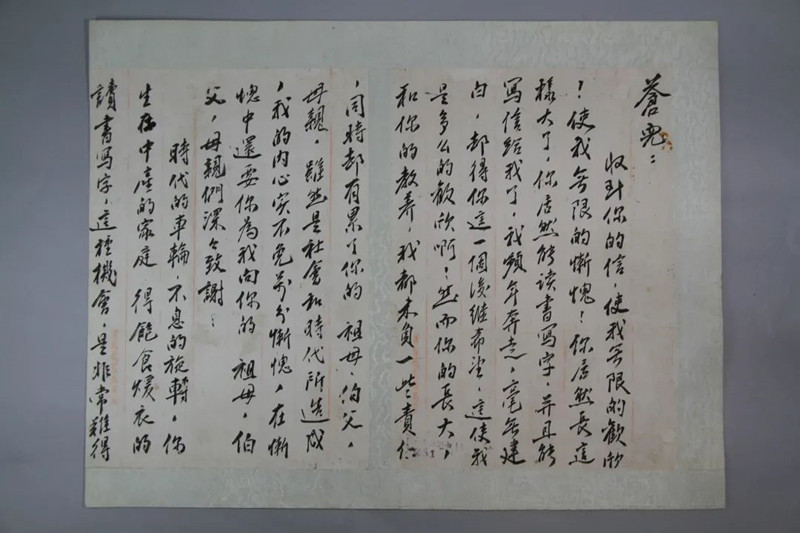 蒼兒：
收到你的信，使我無限的歡欣
！使我無限的慚愧！你居然長這
樣大了，你居然能读書写字，并且能
写信給我了，我頻年奔走，毫無建
白，却得你這一個後継希望，這使我
是多么的歡欣啊！然而你的長大，
和你的教养，我都未負一些責任
，同時却有累了你的祖母，伯父，
母親，雖然是社會和時代所造成
，我的内心实不免萬分慚愧，在慚
愧中還要你為我向你的祖母，伯
父，母親們深々致謝：
時代的車輪，不息的旋轉，你
生存中產的家庭 得飽食煖衣的
讀書写字，這種機會，是非常難得